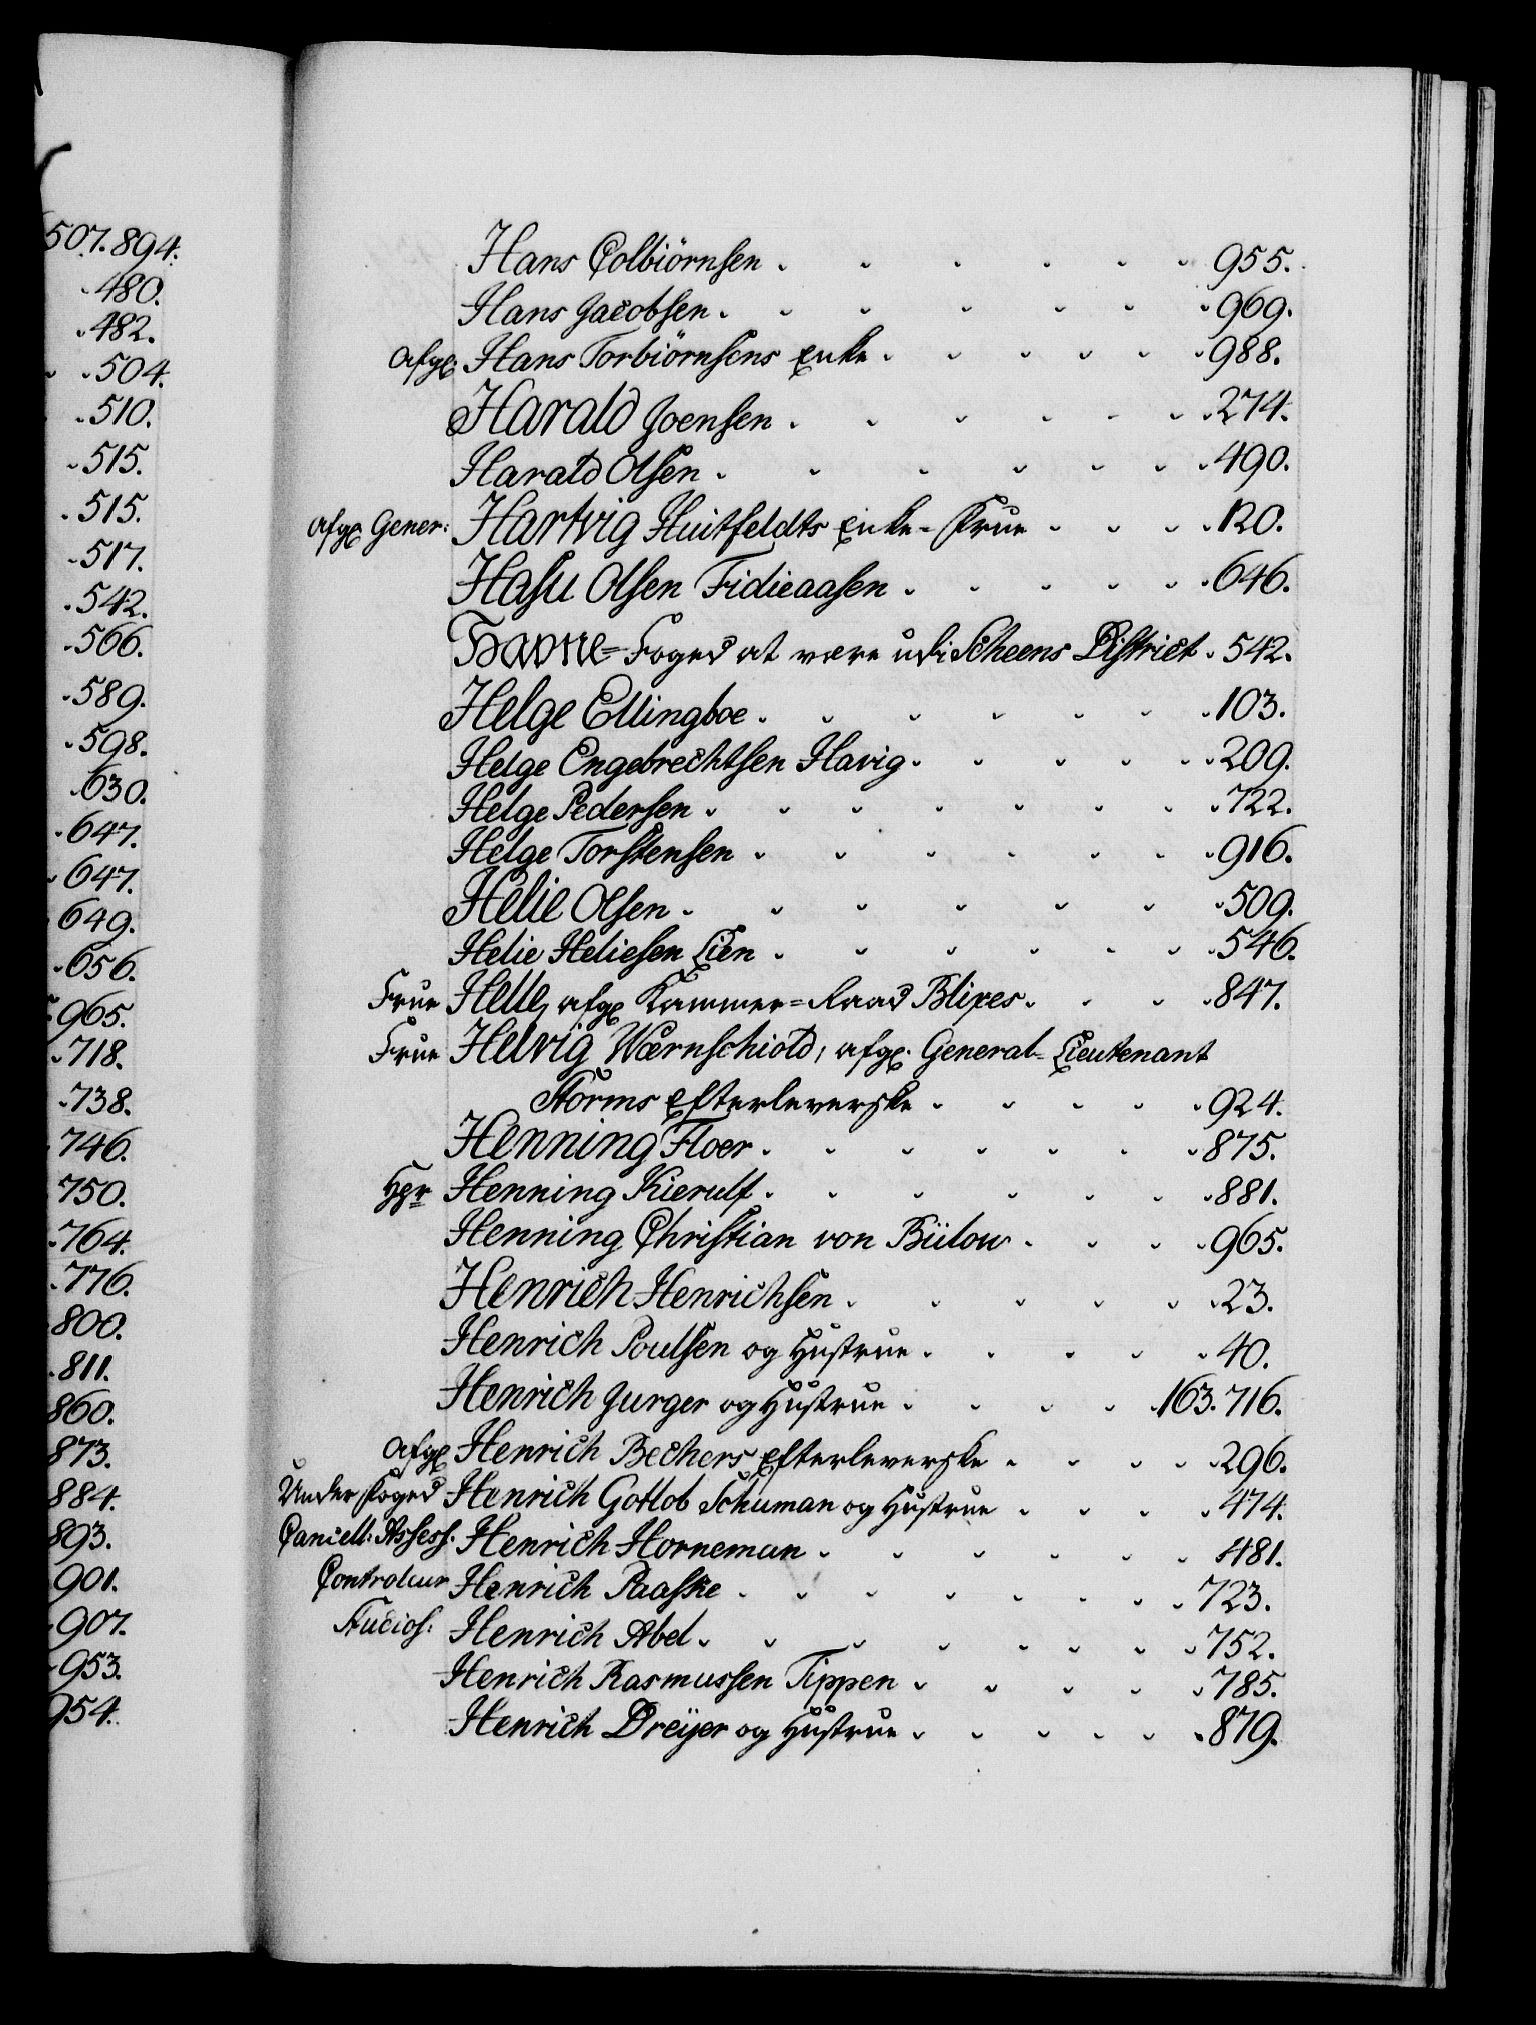 507. 894.
480.
482.
504.
510.
515.
515.
517.
542.
566.
589.
598.
630.
647.
647.
649.
656.
965.
718.
738.
746.
750.
764.
776.
800.
811.
860.
873.
884.
893.
901.
907.
953.
954.
Hans Colbiörnsen . . . . . . 955.
Hans Jacobsen . . . . . . . 969.
afg. Hans Torbiörnsens Enke . . . . . . 988.
Harald Joensen . . . . . . . 274.
Harald Olsen . . . . . . . 490.
afg. Gener: Hartvig Huitfeldts Enke-Frue . . . . 120.
Hasu Olsen Fidieaasen . . . . . . 646.
Havne=Foged at være udi Scheens District . 542.
Helge Ellingboe . . . . . . . 103.
Helge Engebrechtsen Havig . . . . . . 209.
Helge Pedersen . . . . . . . . 722.
Helge Torstensen . . . . . . . 916.
Helie Olsen . . . . . . . 509.
Helie Heliesen Lien . . . . . . . 546.
Frue Helle, afg. Kammer=Raad Blixes . . . . 847.
Frue Helvig Wærnschiold, afg. General-Lieutenant
Storms Efterleverske . . . . . . 924.
Henning Floer . . . . . . . 875.
Hr Henning Kierulf . . . . . . . 881.
Henning Christian von Bülow . . . . 965.
Henrich Henrichsen . . . . . . 23.
Henrich Poulsen og Hustrue . . . . . 40.
Henrich Jurger og Hustrue . . . . . 163. 716.
afg. Henrich Bechers Efterleverske . . . . . 296.
Under Foged Henrich Gotlob Schuman og Hustrue . . . . 474.
Cancell: Assess. Henrich Horneman . . . . . . 481.
Controleur Henrich Paaske . . . . . . . . 723.
Studios: Henrich Abel . . . . . . . . 752.
Henrich Rasmussen Tippen . . . . . 785.
Henrich Dreÿer og Hustrue . . . . . . 879.